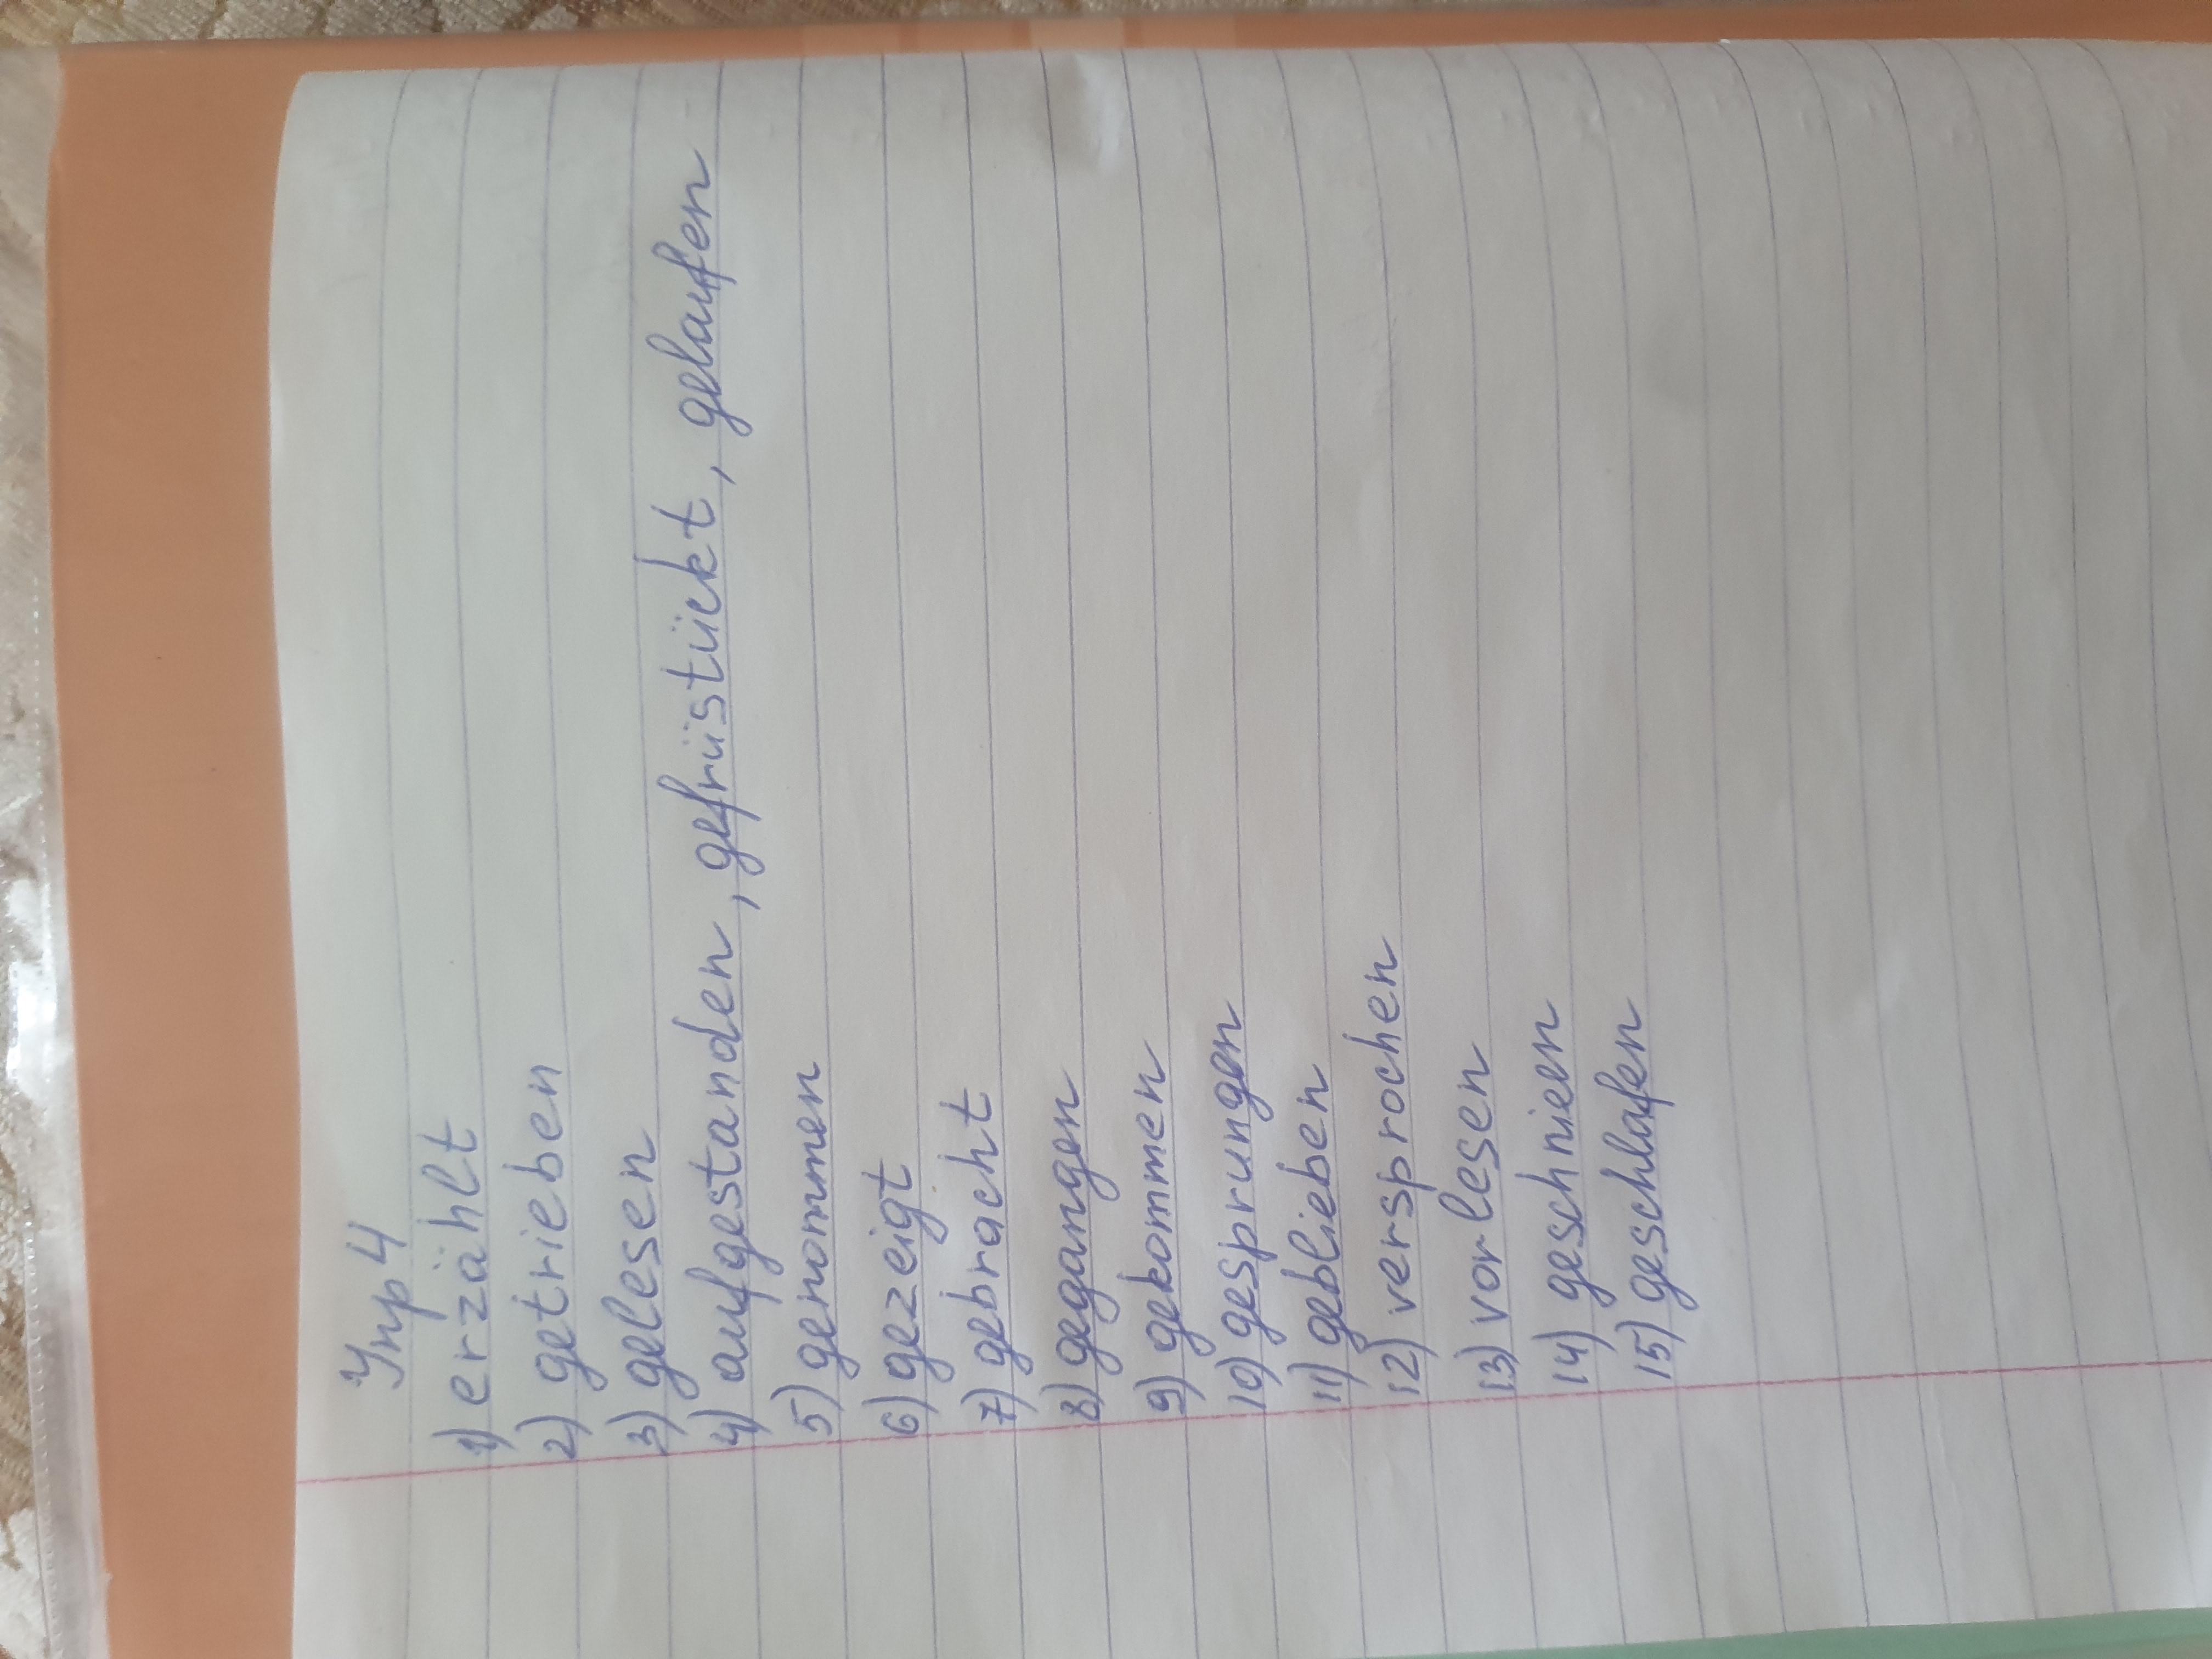 Упр 4
1) erzählt
2) getrieben
3) gelesen
4) aufgestanden, gefrüstückt, gelaufen
5) genommen
6) gezeigt
7) gebracht
8) gegangen
9) gekommen
10) gesprungen
11) geblieben
12) versprochen
13) vorlesen
14) geschnieen
15) geschlafen